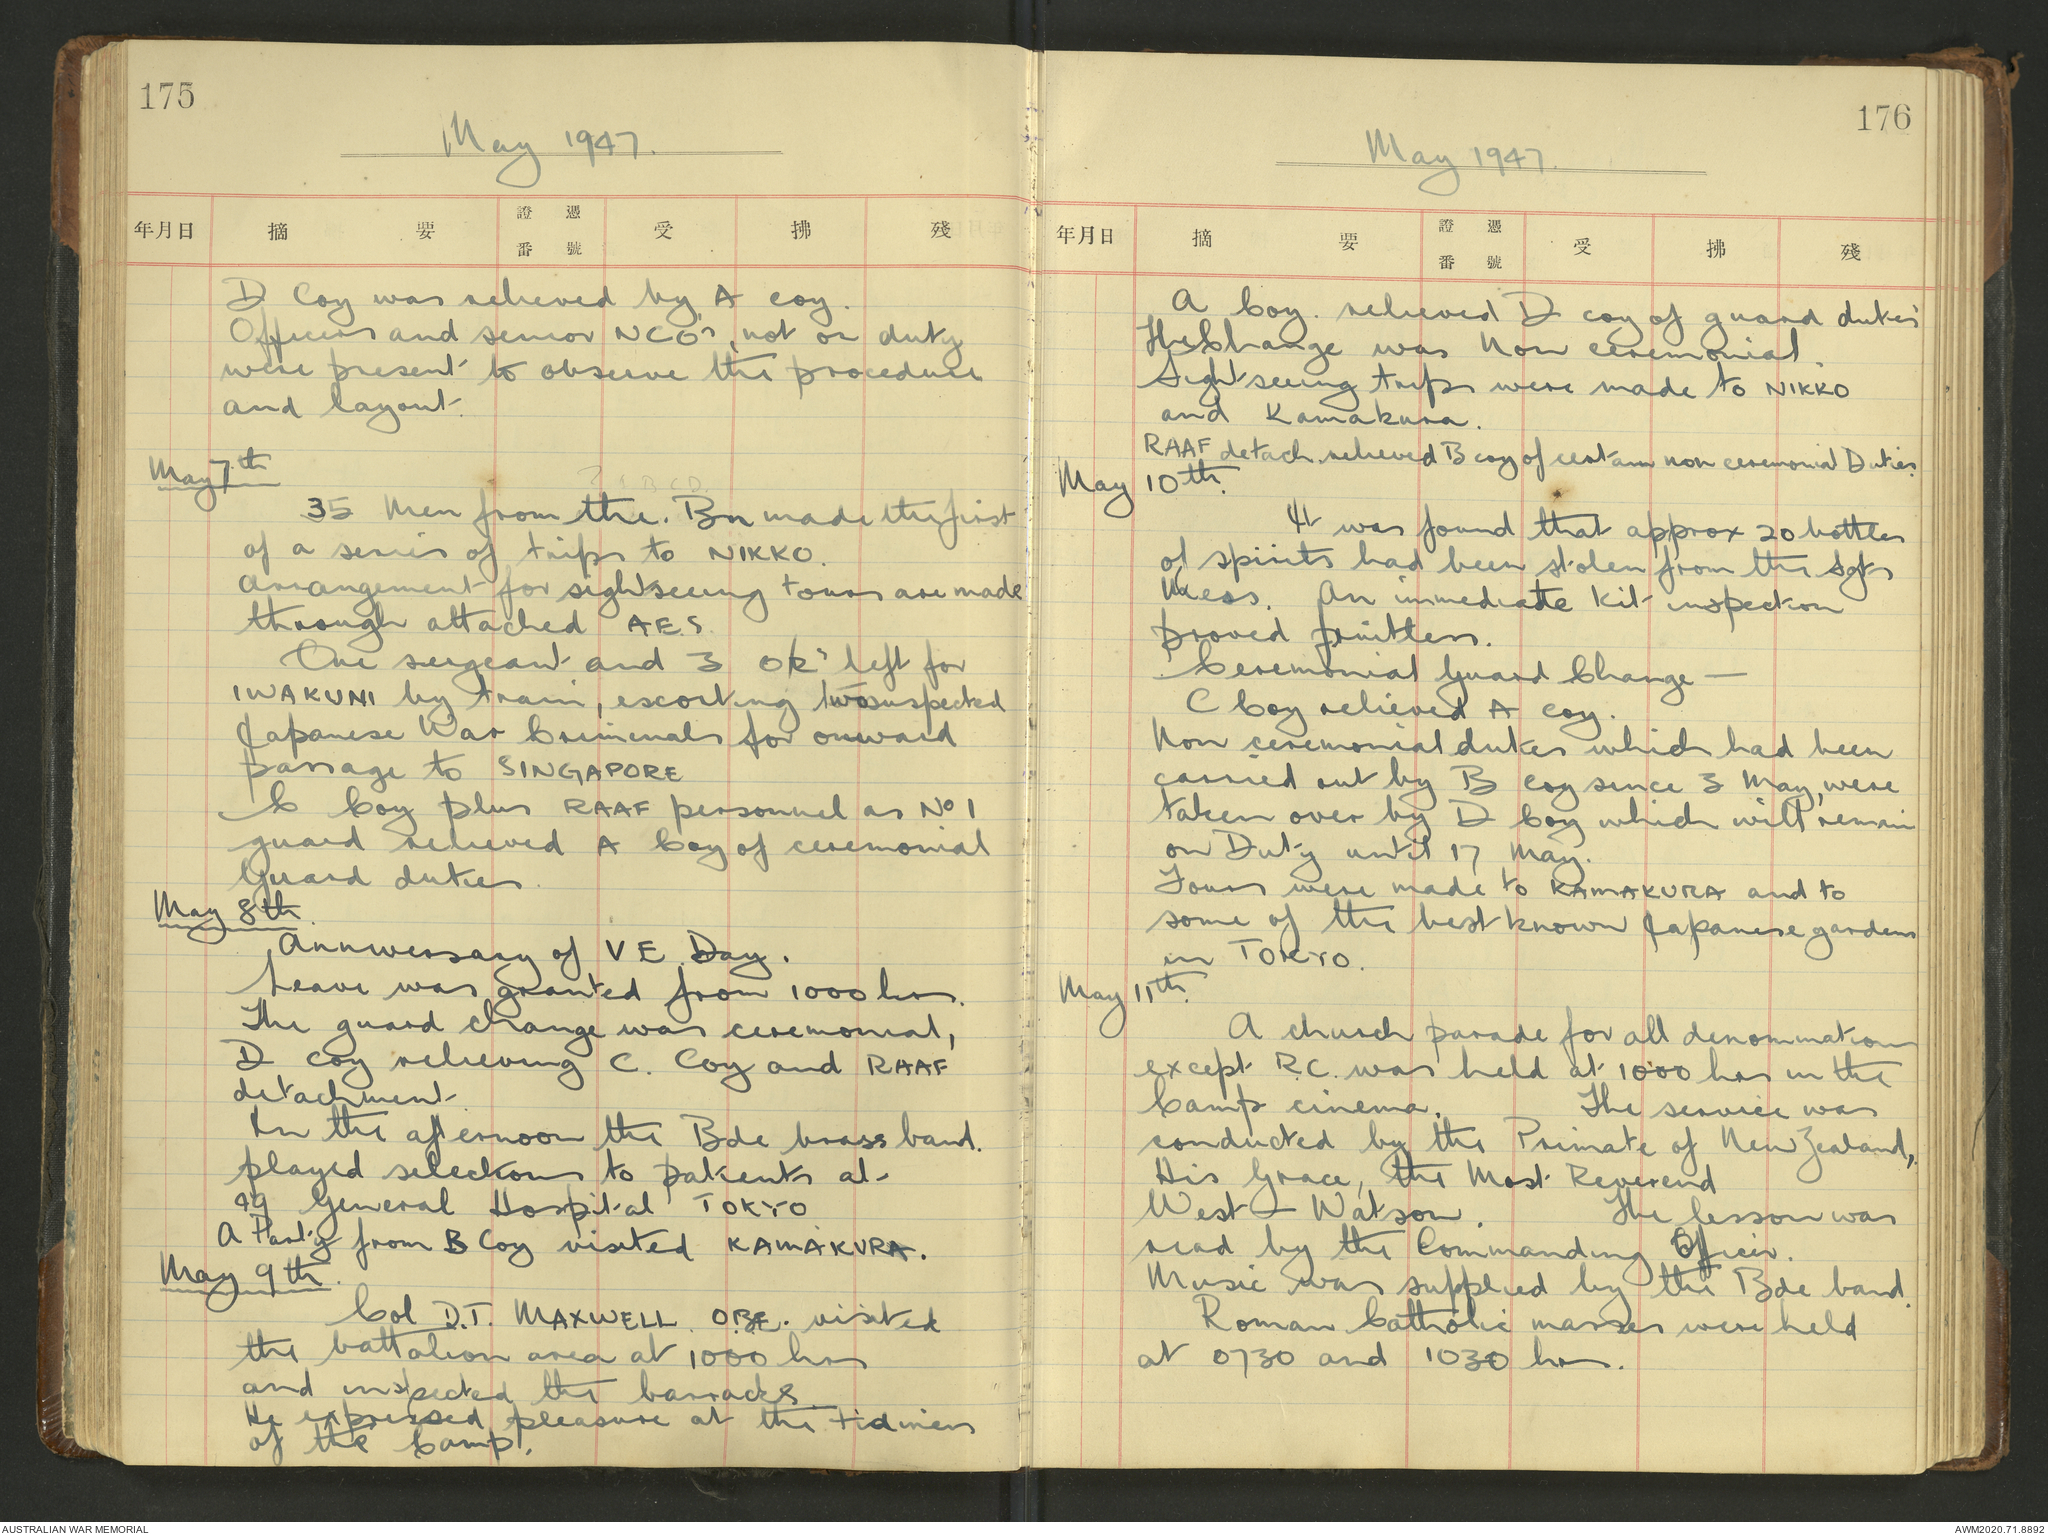 175
May 1947.
年月日 摘 要 證憑番號 受 拂 殘
D Coy was relieved by A coy.
Officers and senior NCO's, not on duty
were present to observe the procedure
and layout.
May 7th
35 Men from the. Bn made the first
of a series of trips to NIKKO.
Arrangement for sightseeing tours are made
through attached A.E.S.
One sergeant and 3 OR's left for
IWAKUNI by train, escorting two suspected
Japanese War Criminals for onward
passage to SINGAPORE
C Coy plus RAAF personnel as No 1
guard relieved A Coy of ceremonial
Guard duties.
May 8th.
Anniversary of V E Day.
Leave was granted from 1000 hrs.
The guard change was ceremonial,
D coy relieving C. Coy and RAAF
detachment.
In the afternoon the Bde brass band.
played selections to patients at
49 General Hospital TOKYO
A Party from B Coy visited KAMAKURA.
May 9th.
Col D.T. MAXWELL. O.B.E. visited
the battalion area at 1000 hrs
and inspected the barracks.
He expressed pleasure at the tidiness
of the Camp.
176
May 1947.
年月日 摘 要 證憑番號 受 拂 殘
A Coy. relieved D coy of guard duties
The Change was Non ceremonial.
Sightseeing trips were made to NIKKO
and Kamakura.
RAAF detach. relieved B coy of certain non ceremonial Duties.
May 10th.
It was found that approx 20 bottles
of spirits had been stolen from the Sgts
Mess. An immediate Kit inspection
proved fruitless.
Ceremonial Guard Change —
C Coy relieved A coy.
Non ceremonial duties which had been
carried out by B coy since 3 May, were
taken over by D Coy which will remain
on Duty until 17 May.
Tours were made to KAMAKURA and to
some of the best known Japanese gardens
in TOKYO.
May 11th.
A church parade for all denominations
except R.C. was held at 1000 hrs in the
Camp cinema. The service was
conducted by the Primate of New Zealand,
His Grace, the Most Reverend
West - Watson. The lesson was
read by the Commanding Officer.
Music was supplied by the Bde band.
Roman Catholic masses were held
at 0730 and 1030 hrs.
AUSTRALIAN WAR MEMORIAL
AWM2020.71.8892